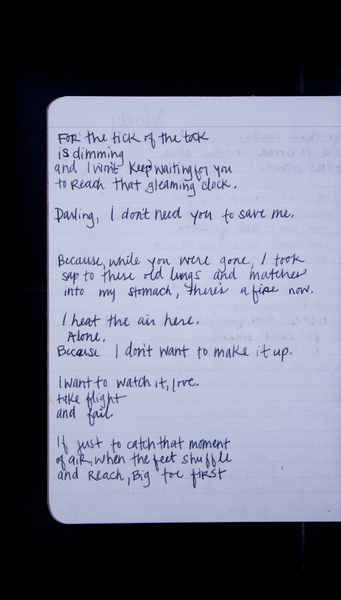 For the tick of the tock
is dimming
and I won't keep waiting for you
to reach that gleaming clock.
Darling, I don't need you to save me.
Because, while you were gone, I took
sap to these old lungs and matches
into my stomach, there's a fire now.
I heat the air here.
Alone.
Because I don't want to make it up.
I want to watch it, love.
take flight
and fail.
If just to catch that moment
of air, when the feet shuffle
and reach, Big toe first